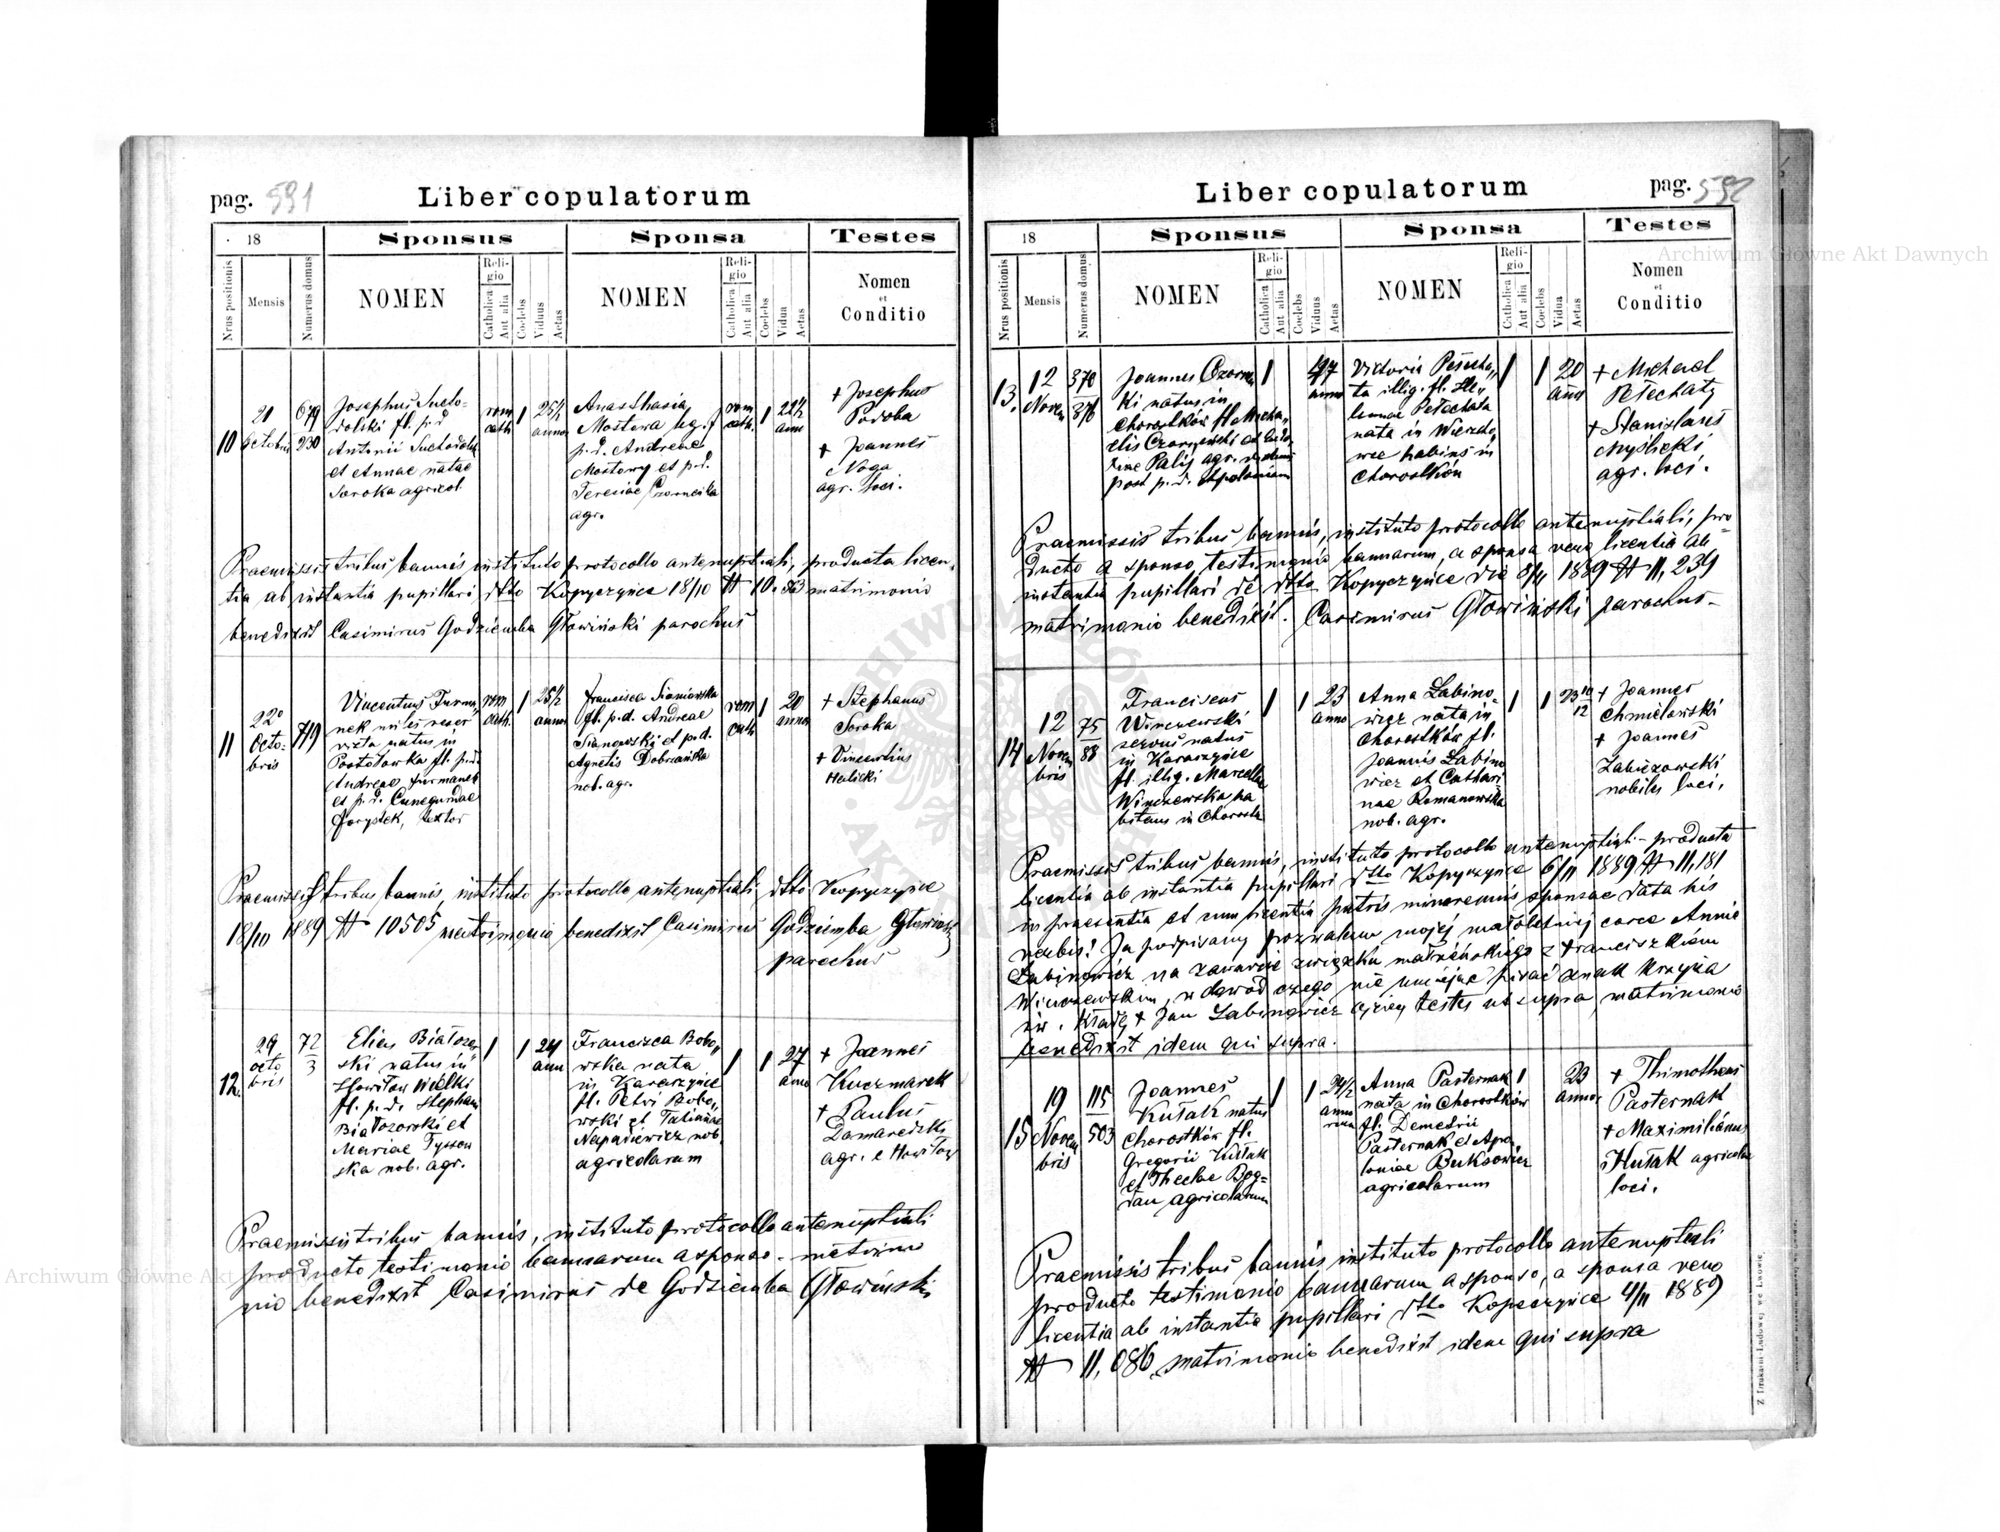 pag. 591
Liber copulatorum
18
Sponsus
Sponsa
Testes
Nrus positionis
Mensis
Numerus domus
NOMEN
Religio
Catholica
Aut alia
Coelebs
Viduus
Aetas
NOMEN
Religio
Catholica
Aut alia
Coelebs
Vidua
Aetas
Nomen
et
Conditio
10
21
Octobris
679
230
Josephus Sucho-
dolski fl. p.d
Antonii Suchodolski
et Annae natae
Soroka agricol.
rom
cath.
1
25½
annor
Anasthasia
Mostowa leg. f
p.d. Andreae
Mostowy et p.d.
Teresiae Czornecka
agr.
rom
cath.
1
22½
ann
+ Josephus
Poroba
+ Joannes
Noga
agr. loci.
Praemissis tribus bannis instituto protocollo antenuptiali, producta licen-
tia ab instantia pupillari dtto Kopyczyńce 18/10 № 10.563 matrimonio
benedixit Casimirus Godziemba Głowiński parochus
11
22
Octo-
bris
719
Vincentius Furma
nek miles reser
vista natus in
Postołowka fl. p.d.
Andreae Furmanek
et p.d. Cunegundae
Jorystek, textor
rom
cath.
1
25½
annor
Francisca Sianiowska
fl. p.d. Andreae
Sianowski et p.d.
Agnetis Dobrzańska
nob. agr.
rom
cath
1
20
annor
+ Stephanus
Soroka
+ Vincentius
Halicki
Praemissis tribus bannis, instituto protocollo antenuptiali, dtto Kopyczyńce
18/10 1889 № 10505 matrimonio benedixit Casimirus Godziemba Głowiński
parochus
12.
29
octo
bris
72
3
Elias Białozor
ski natus in
Howiłow Wielki
fl. p.d. Stephani
Białozorski et
Mariae Tysson
ska nob. agr.
1
1
24
ann
Francisca Bobo„
wska nata
in Karaszyńce
fl. Petri Bobo„
wski et Tatianae
Napadiewicz nob.
agricolarum
1
1
27
ann
+ Joannes
Kuczmarek
+ Paulus
Damaredzki
agr. e Howiłow
Praemissis tribus bannis, instituto protocollo antenuptiali
producto testimonio bannarum a sponso. matrimo
nio benedixit Casimirus de Godziemba Głowiński
Liber copulatorum
pag. 592
18
Sponsus
Sponsa
Testes
Nrus positionis
Mensis
Numerus domus
NOMEN
Religio
Catholica
Aut alia
Coelebs
Viduus
Aetas
NOMEN
Religio
Catholica
Aut alia
Coelebs
Vidua
Aetas
Nomen
et
Conditio
13.
12
Novem
370
376
Joannes Czorne
ki natus in
Chorostków fl. Micha„
elis Czorniewski et Eudo„
xiae Palij agr. viduus
post p.d. Apoloniam
1
47
annor
Victoria Pełecha„
ta illig. fl. He„
lenae Pełechata
nata in Wierzbo„
wce habins in
Chorostków
1
1
20
ann
+ Michael
Pełechaty
+ Stanislaus
Myślicki
agr. loci.
Praemissis tribus bannis, instituto protocollo antenuptiali, pro-
ducto a sponso testimonio bannarum, a sponsa vero licentia ab
instantia pupillari de dtto Kopyczyńce die 8/11 1889 № 11,239
matrimonio benedixit. Casimirus Głowiński parochus-
14
12
Novem
bris
75
88
Franciscus
Winczewski
servus natus
in Karaszyńce
fl. illig. Marcella
Winczewska ha
bitans in Chorostk
1
1
23
anno
Anna Labino-
wicz nata in
Chorostków fl.
Joannis Labino
wicz et Cathari
nae Romanowska
nob. agr.
1
1
23 10/12
+ Joannes
Chmielowski
+ Joannes
Zabiezowski
nobiles loci.
Praemissis tribus bannis, instituto protocollo antenuptiali- producta
licentia ab instantia pupillari dtto Kopyczyńce 6/11 1889 № 11,181
in praesentia et cum licentia patris minorennis sponsae data his
verbis! Ja podpisany pozwalam mojej małoletniej corce Annie
Labinowicz na zawarcie związku małżeńskiego z Franciszkiem
Winczewskim, w dowod czego nie umiejąc pisać znak krzyża
św. kładę + Jan Labinowicz ojciec, testes ut supra, matrimonio
benedixit idem qui supra.
15
19
Novem
bris
115
503
Joannes
Kutak natus
Chorostków fl.
Gregorii Kutak
et Theclae Bog-
dan agricolarum
1
1
24½
anno
rum
Anna Pasternak
nata in Chorostków
fl. Demetrii
Pasternak et Apo„
loniae Buksowicz
agricolarum
1
23
annor
+ Thimotheus
Pasternak
+ Maximilianus
Kutak agricolae
loci.
Praemissis tribus bannis instituto protocollo antenuptiali
producto testimonio bannarum a sponso, a sponsa vero
licentia ab instantia pupillari dtto Kopeczyńce 4/11 1889
№ 11,086, matrimonio benedixit idem qui supra
Z Drukarni Ludowej we Lwowie.
Archiwum Główne Akt Dawnych
Archiwum Główne Akt Dawnych